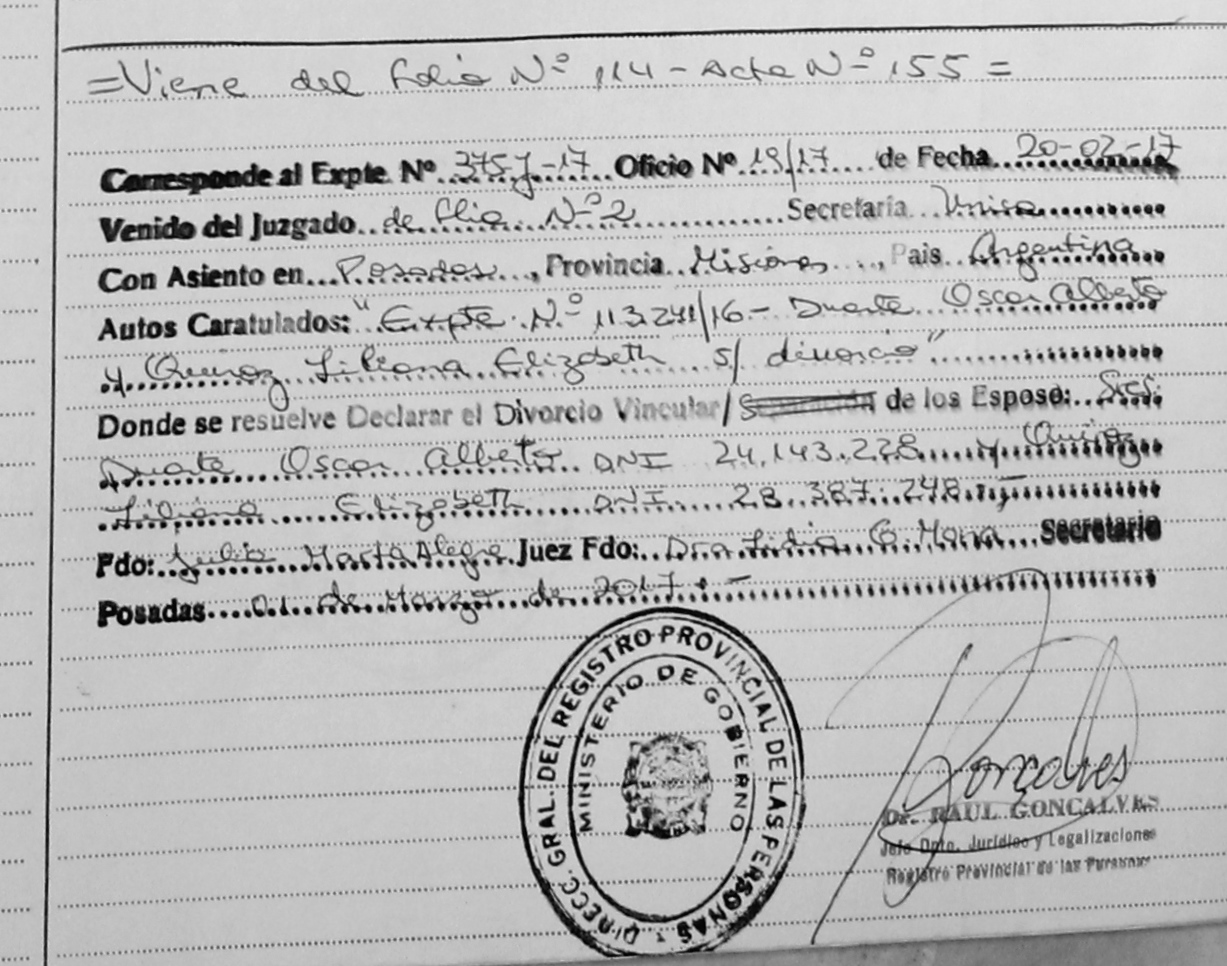 =Viene del folio Nº 114 - Acta Nº 155 =
Corresponde al Expte. Nº 375J-17 Oficio Nº 19/17 de Fecha 20-02-17
Venido del Juzgado de Flia Nº 2 Secretaría Unica
Con Asiento en Posadas, Provincia Misiones, Pais Argentina
Autos Caratulados: "Expte. N.º 113.241/16 - Duarte Oscar Alberto
y Quiroz Liliana Elizabeth s/ divorcio"
Donde se resuelve Declarar el Divorcio Vincular/Separación de los Esposo: Sres.
Duarte Oscar Alberto DNI 24.143.228 y Quiroz
Liliana Elizabeth DNI 28.387.248.-
Fdo: Julia Marta Alegre Juez Fdo: Dra Lidia G. Secretario
Posadas 01 de Marzo de 2017.-
DIRECC. GRAL. DEL REGISTRO PROVINCIAL DE LAS PERSONAS
MINISTERIO DE GOBIERNO
Gonçalves
Dr. RAUL GONCALVES
Jefe Dpto. Jurídico y Legalizaciones
Registro Provincial de las Personas